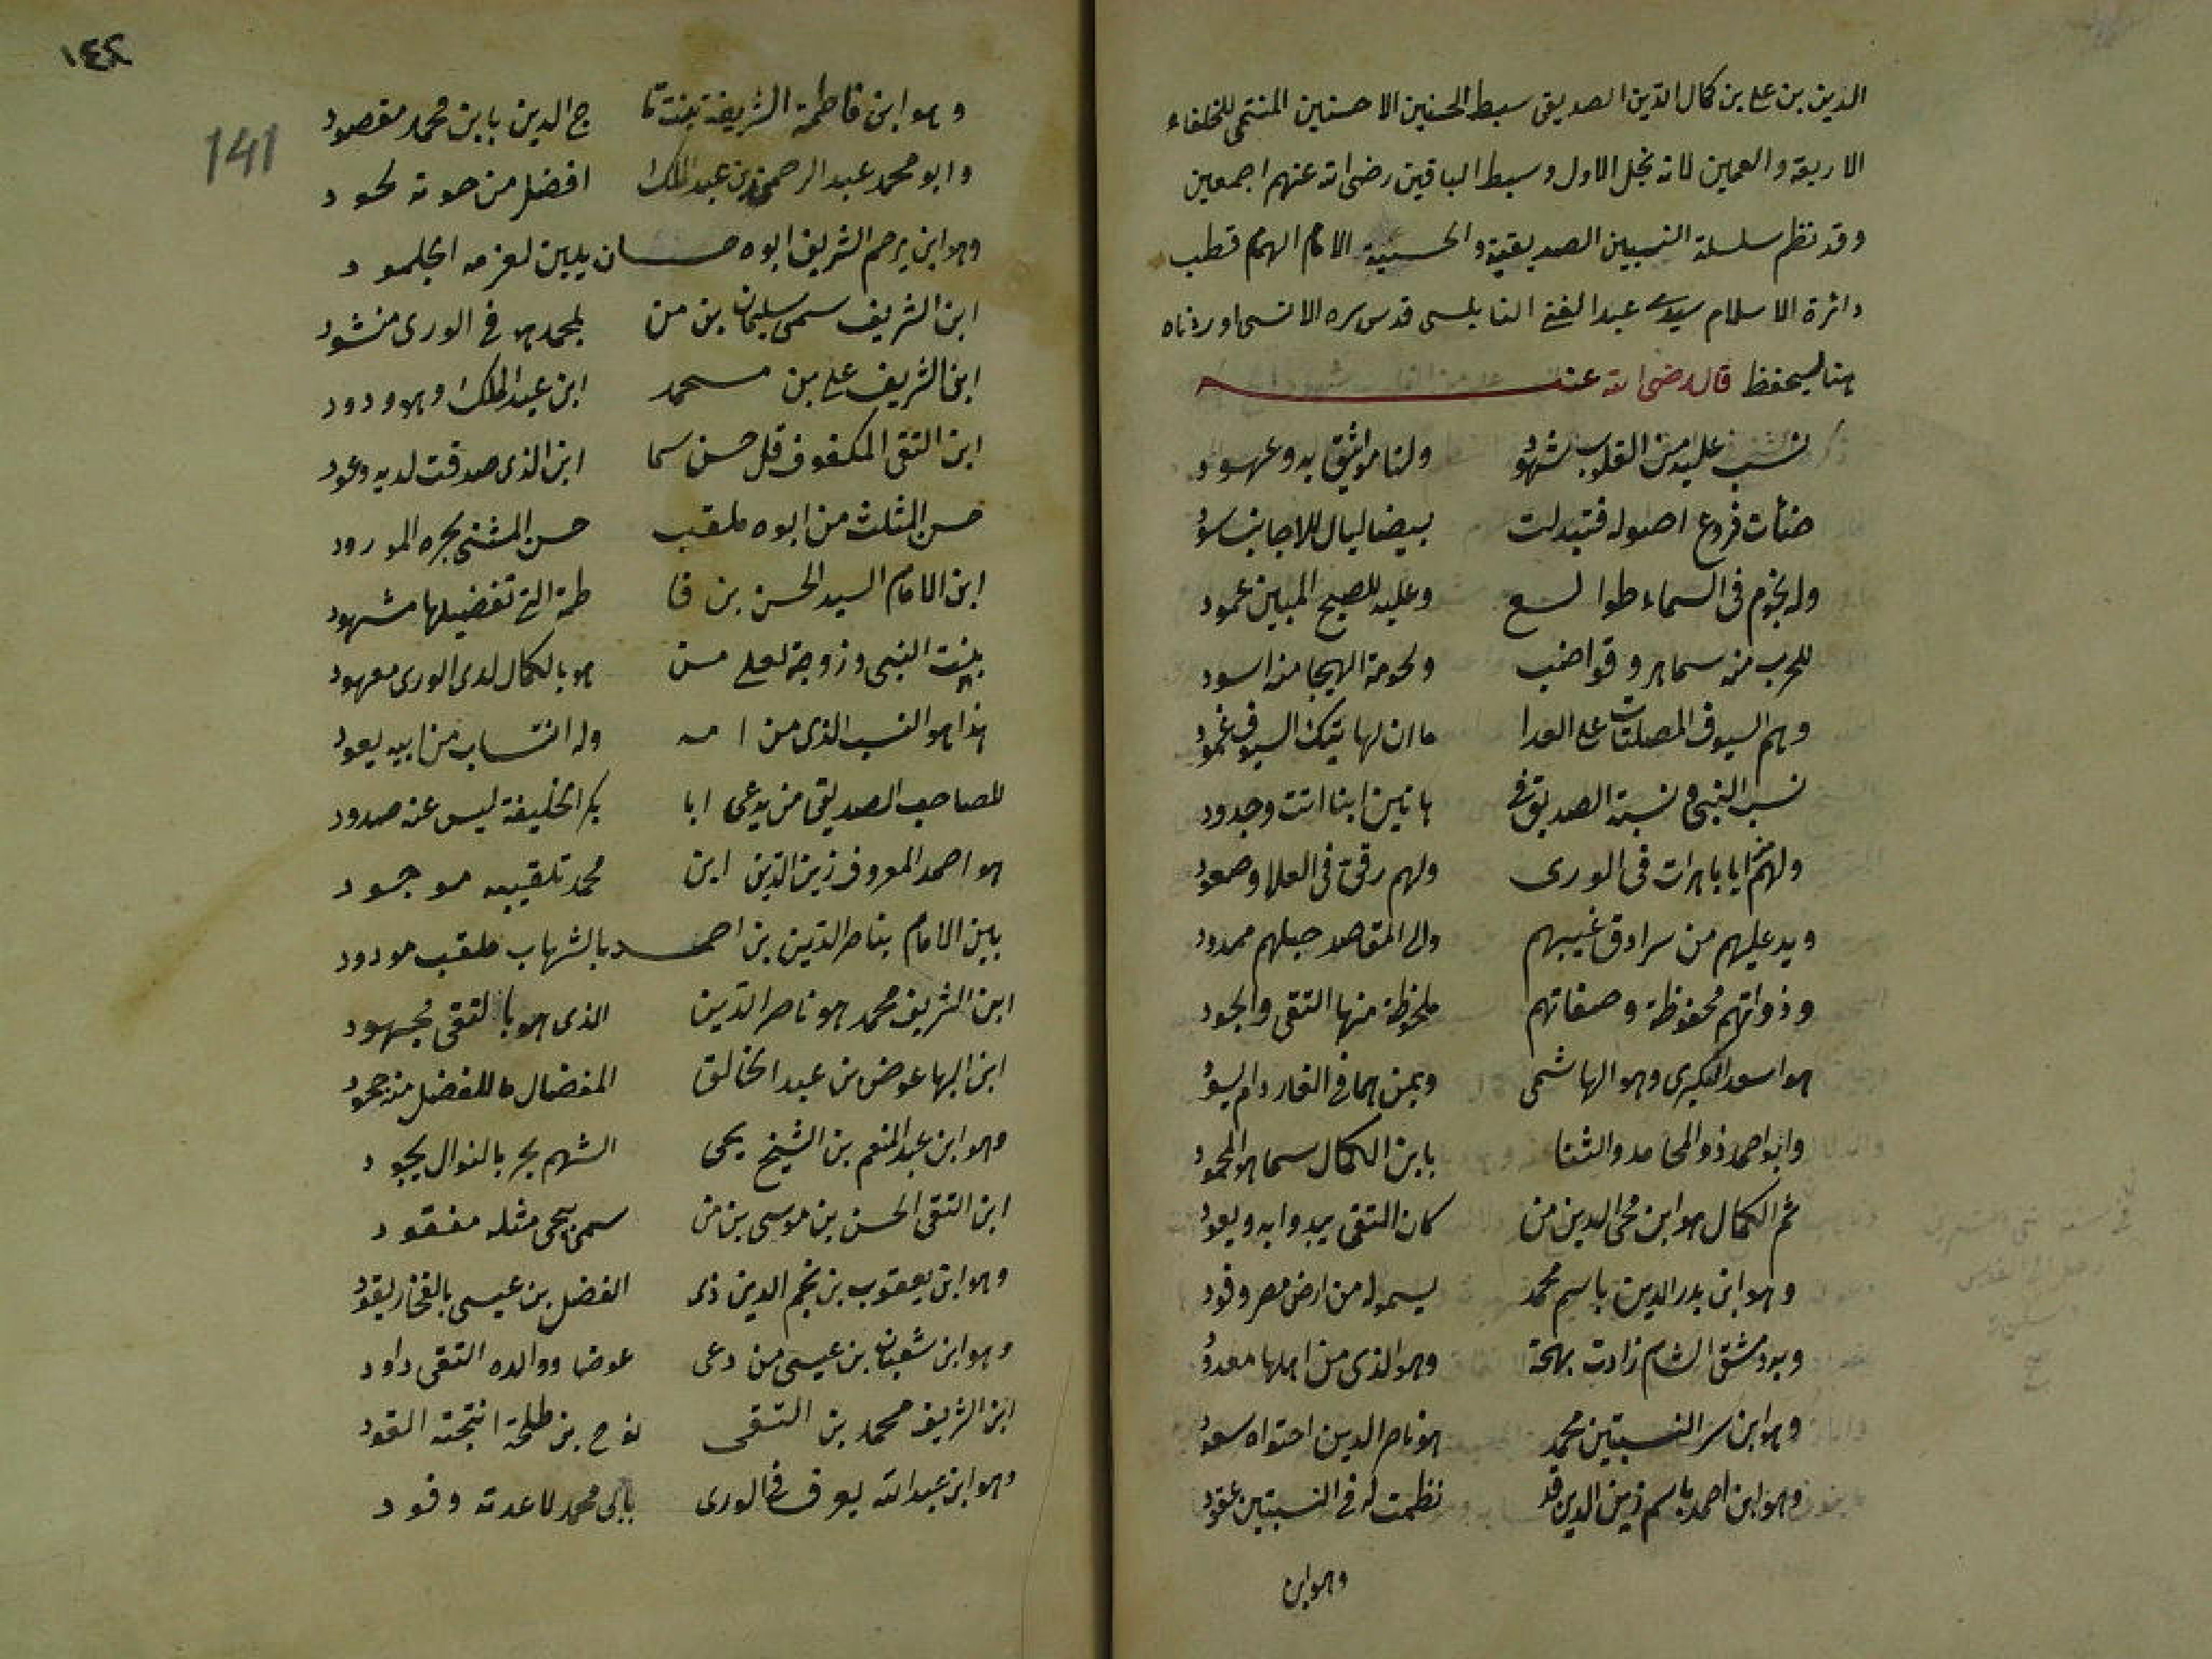 الدين بن علي بن كمال الدين الصديقي سبط الحسنين الاحسنين المنتمي للخلفاء
الاربعة والعمين لانه نجل الاول وسبط الباقين رضي الله عنهم اجمعين
وقد نظم سلسلة النسبين الصديقية والحسنية الامام الهمام قطب
دائرة الاسلام سيدي عبد الغني النابلسي قدس سره الانسي اوردناه
هنا ليحفظ قال رضي الله عنه
نسب عليه من القلوب شهود ولنا مواثيق به وعهود
ضأت فروع اصوله فتبدلت بيضا ليال للاجانب سود
وله نجوم في السماء طوالع وعليه للصبح المبين عمود
للحرب منه سماهر وقواضب ولحومة الهيجا منه اسود
وهم السيوف المصلتات على العدا ما ان لها تيك السيوف غمود
نسب النبي ونسبة الصديق في هاتين ابنا انت وجدود
ولهم مزايا باهرات في الورى ولهم رقي في العلا وصعود
ويد عليهم من سرادق غيبهم والى المقاصد حبلهم ممدود
وذواتهم محفوظة وصفاتهم ملحوظة منها التقى والجود
هو اسعد البكري وهو الهاشمي وبمن هما في الغار دام يسود
وابو احمد ذو المحامد والثنا بابن الكمال سما هو المحمود
ثم الكمال هو ابن محي الدين من كان التقى يبدو به ويعود
وهو ابن بدر الدين باسم محمد يسمو له من ارض مصر وفود
وبه دمشق الشام زادت بهجة وهو الذي من اهلها معدود
وهو ابن سر النسبتين محمد هو ناصر الدين احتواه سعود
وهو ابن احمد باسم زين الدين قد نظمت له في النسبتين عقود
وهو ابن
١٤٢
141
وهو ابن فاطمة الشريفة بنت تا ج الدين بابن محمد مقصود
وابو محمد عبد الرحمن بن عبد الملك افضل من حوته لحود
وهو ابن يرحم الشريف ابوه حسان يلين لعزمه الجلمود
ابن الشريف سمى سليمان بن من لمحمد هو في الورى منشود
ابن الشريف علي بن محمد ابن عبد الملك وهو ودود
ابن التقي المكفوف قل حسن سما ابن الذي صدقت لديه وعود
حسن المثلث من ابوه ملقب حسن المثنى بحره المورود
ابن الامام السيد الحسن بن فا طمة التي تفضيلها مشهود
بنت النبي وزوجة لعلي من هو بالكمال لدى الورى معهود
هذا هو النسب الذي من امه وله انتساب من ابيه يعود
للصاحب الصديق من يدعى ابا بكر الخليفة ليس عنه صدود
هو احمد المعروف زين الدين ابن محمد تلقيبه موجود
بابن الامام بناصر الدين بن احمد بالشهاب ملقب مودود
ابن الشريف محمد هو ناصر الدين الذي هو بالتقى مجهود
ابن البها عوض بن عبد الخالق المفضال ما للفضل منه جحود
وهو ابن عبد المنعم بن الشيخ يحيى الشهم بحر بالنوال يجود
ابن التقي الحسن بن موسى بن من سمى بيحيى مثله مفقود
وهو ابن يعقوب بن نجم الدين ذى الفضل بن عيسى بالفخار يقود
وهو ابن شعبان بن عيسى من دعى عوضا ووالده التقي داود
ابن الشريف محمد بن التقي نوح بن طلحة انتجته القود
وهو ابن عبد الله يعرف في الورى بابي محمد ما عدته وفود